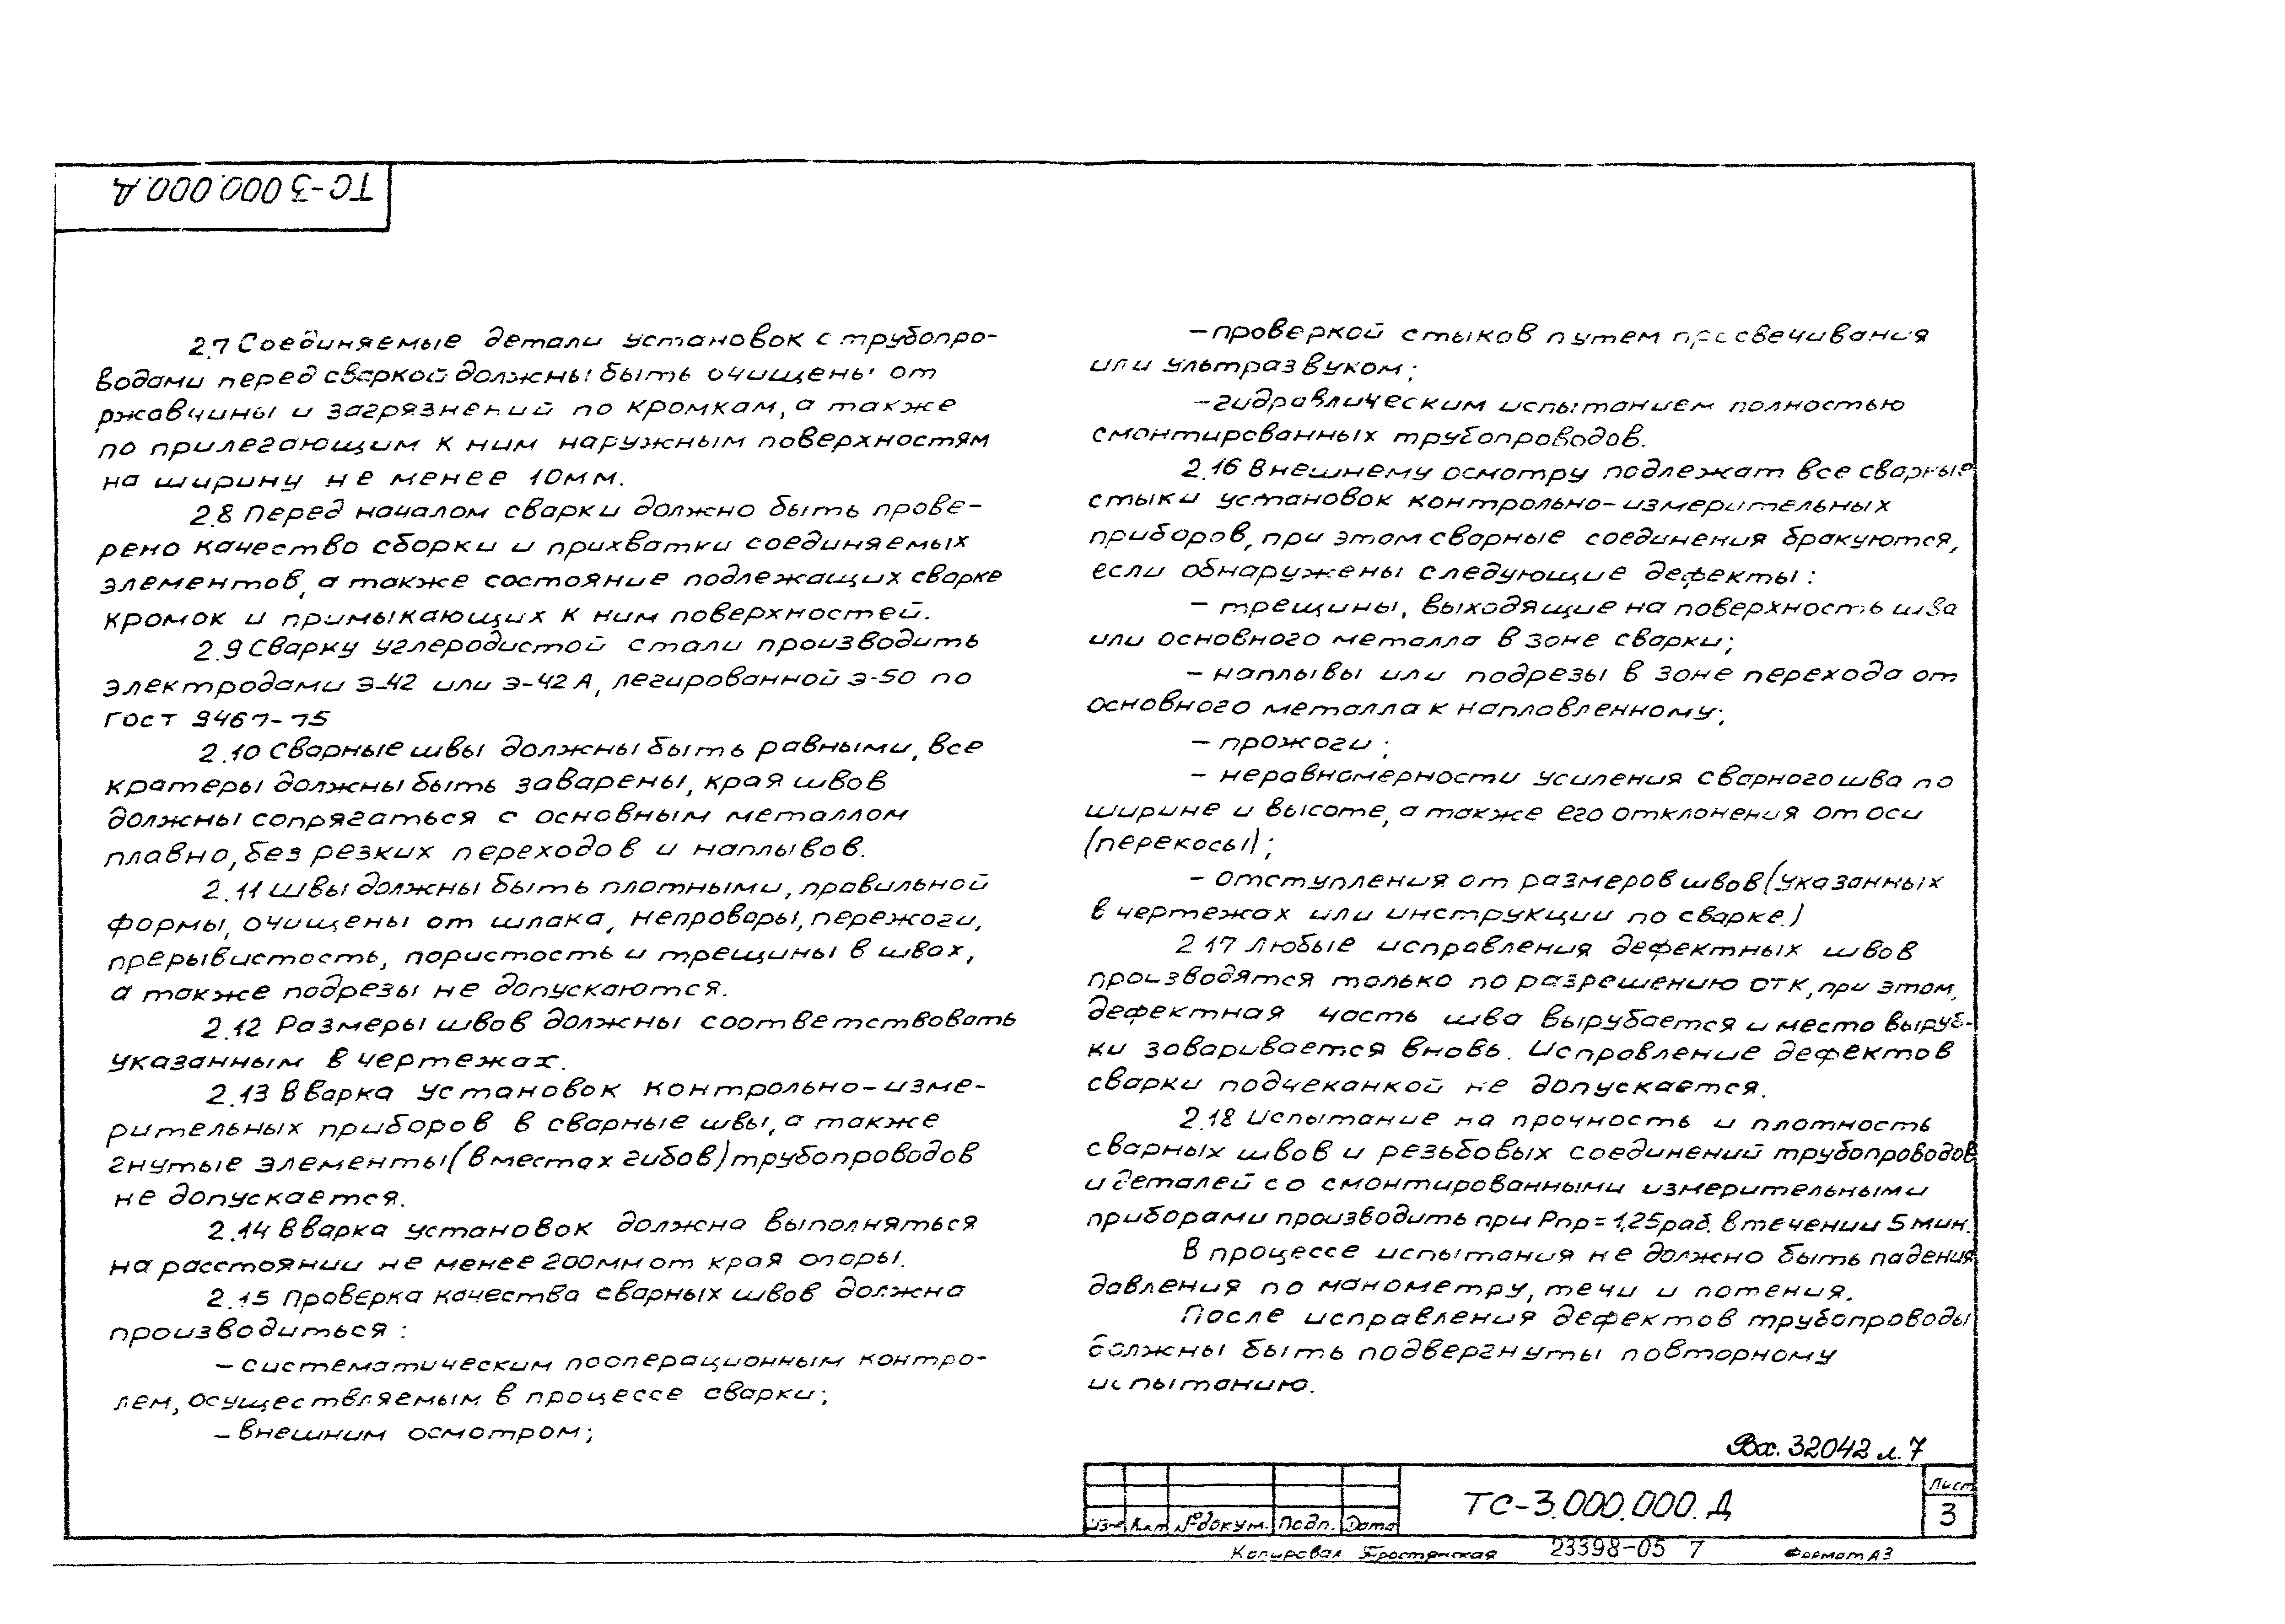 ТС-3.000.000.Д
2.7 Соединяемые детали установок с трубопро-
водами перед сваркой должны быть очищены от
ржавчины и загрязнений по кромкам, а также
по прилегающим к ним наружным поверхностям
на ширину не менее 10мм.
2.8 Перед началом сварки должно быть прове-
рено качество сборки и прихватки соединяемых
элементов, а также состояние подлежащих сварке
кромок и примыкающих к ним поверхностей.
2.9 Сварку углеродистой стали производить
электродами Э-42 или Э-42А, легированной Э-50 по
ГОСТ 9467-75
2.10 Сварные швы должны быть равными, все
кратеры должны быть заварены, края швов
должны сопрягаться с основным металлом
плавно, без резких переходов и наплывов.
2.11 Швы должны быть плотными, правильной
формы, очищены от шлака, непровары, пережоги,
прерывистость, пористость и трещины в швах,
а также подрезы не допускаются.
2.12 Размеры швов должны соответствовать
указанным в чертежах.
2.13 Вварка установок контрольно-изме-
рительных приборов в сварные швы, а также
гнутые элементы (в местах гибов) трубопроводов
не допускается.
2.14 Вварка установок должна выполняться
на расстоянии не менее 200мм от края опоры.
2.15 Проверка качества сварных швов должна
производиться:
- систематическим пооперационным контро-
лем, осуществляемым в процессе сварки;
- внешним осмотром;
- проверкой стыков путем просвечивания
или ультразвуком;
- гидравлическим испытанием полностью
смонтированных трубопроводов.
2.16 Внешнему осмотру подлежат все сварные
стыки установок контрольно-измерительных
приборов, при этом сварные соединения бракуются,
если обнаружены следующие дефекты:
- трещины, выходящие на поверхность шва
или основного металла в зоне сварки;
- наплывы или подрезы в зоне перехода от
основного металла к наплавленному;
- прожоги;
- неравномерности усиления сварного шва по
ширине и высоте, а также его отклонения от оси
(перекосы);
- отступления от размеров швов (указанных
в чертежах или инструкции по сварке.)
2.17 Любые исправления дефектных швов
производятся только по разрешению ОТК, при этом,
дефектная часть шва вырубается и место выруб-
ки заваривается вновь. Исправление дефектов
сварки подчеканкой не допускается.
2.18 Испытание на прочность и плотность
сварных швов и резьбовых соединений трубопроводов
и деталей со смонтированными измерительными
приборами производить при Рпр=1,25раб. в течении 5 мин.
В процессе испытания не должно быть падения
давления по манометру, течи и потения.
После исправления дефектов трубопроводы
должны быть подвергнуты повторному
испытанию.
Вх. 32042 л. 7
Изм. Лист № докум. Подп. Дата
ТС-3.000.000.Д
Лист
3
Копировал Простянская 23398-05 7 Формат А3